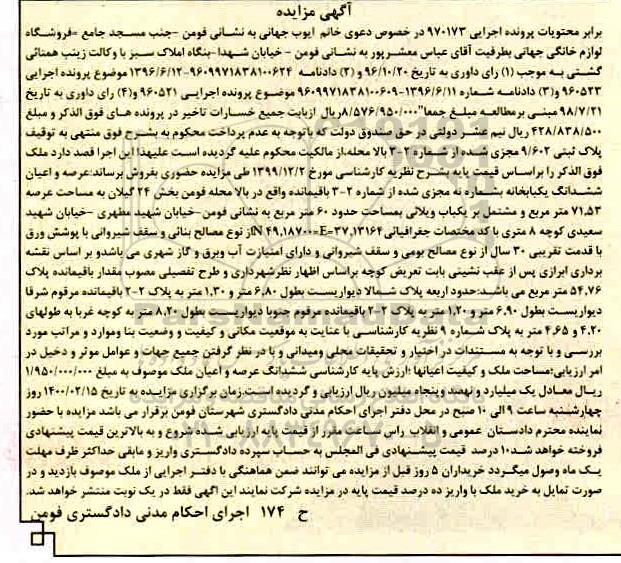 آگهی مزایده
برابر محتویات پرونده اجرایی ۹۷۰۱۷۳ در خصوص دعوی خانم ایوب جهانی به نشانی فومن -جنب مسجد جامع -فروشگاه
لوازم خانگی جهانی بطرفیت آقای عباس معشرپور به نشانی فومن - خیابان شهدا-بنگاه املاک سبز با وکالت زینب همتائی
گشتی به موجب (۱) رای داوری به تاریخ ۹۶/۱۰/۲۰ و (۲) دادنامه ۹۶۰۹۹۷۱۸۳۸۱۰۰۶۲۴-۱۳۹۶/۶/۱۲ موضوع پرونده اجرایی
۹۶۰۵۲۳ و(۳) دادنامه شماره ۹۶۰۹۹۷۱۸۳۸۱۰۰۶۰۹-۱۳۹۶/۶/۱۱ موضوع پرونده اجرایی ۹۶۰۵۲۱ و(۴) رای داوری به تاریخ
۹۸/۷/۲۱ مبنی برمطالعه مبلغ جمعا"۸/۵۷۶/۹۵۰/۰۰۰ریال ازبابت جمیع خسارات تاخیر در پرونده های فوق الذکر و مبلغ
۴۲۸/۸۳۸/۵۰۰ ریال نیم عشر دولتی در حق صندوق دولت که باتوجه به عدم پرداخت محکوم به بشرح فوق منتهی به توقیف
پلاک ثبتی ۹/۶۰۲ مجزی شده از شماره ۲-۳ بالا محله،از مالکیت محکوم علیه گردیده است علیهذا این اجرا قصد دارد ملک
فوق الذکر را براساس قیمت پایه بشرح نظریه کارشناسی مورخ ۱۳۹۹/۱۲/۲ طی مزایده حضوری بفروش برساند:عرصه و اعیان
ششدانگ یکبابخانه بشماره نه مجزی شده از شماره ۲-۳ باقیمانده واقع در بالا محله فومن بخش ۲۴ گیلان به مساحت عرصه
۷۱٫۵۳ متر مربع و مشتمل بر یکباب ویلائی بمساحت حدود ۶۰ متر مربع به نشانی فومن-خیابان شهید مطهری -خیابان شهید
سعیدی کوچه ۸ متری با کد مختصات جغرافیائیN ۴۹٫۱۸۷۰۰=E=۳۷٫۱۳۱۶۴از نوع مصالح بنائی و سقف شیروانی با پوشش ورق
با قدمت تقریبی ۳۰ سال از نوع مصالح بومی و سقف شیروانی و دارای امتیازت آب وبرق و گاز شهری می باشدو بر اساس نقشه
برداری ابرازی پس از عقب نشینی بابت تعریض کوچه براساس اظهار نظرشهرداری و طرح تفصیلی مصوب مقدار باقیمانده پلاک
۵۴٫۷۶ متر مربع می باشد:حدود اربعه پلاک شمالا دیواریست بطول ۶٫۸۰ متر و ۱٫۳۰ متر به پلاک ۲-۲ باقیمانده مرقوم شرقا
دیواریست بطول ۶٫۹۰ متر و ۱٫۲۰ متر به پلاک ۲-۲ باقیمانده مرقوم جنوبا دیواریست بطول ۸٫۲۰ متر به کوچه غربا به طولهای
۴٫۲۰ و ۴٫۶۵ متر به پلاک شماره ۹ نظریه کارشناسی با عنایت به موقعیت مکانی و کیفیت و وضعیت بنا وموارد و مراتب مورد
بررسی و با توجه به مستندات در اختیار و تحقیقات محلی ومیدانی و با در نظر گرفتن جمیع جهات و عوامل موثر و دخیل در
امر ارزیابی؛مساحت ملک و کیفیت اعیانها ؛ارزش پایه کارشناسی ششدانگ عرصه و اعیان ملک موصوف به مبلغ ۱/۹۵۰/۰۰۰/۰۰۰
ریال معادل یک میلیارد و نهصد وپنجاه میلیون ریال ارزیابی و گردیده است.زمان برگزاری مزایده به تاریخ ۱۴۰۰/۰۲/۱۵ روز
چهارشنبه ساعت ۹ الی ۱۰ صبح در محل دفتر اجرای احکام مدنی دادگستری شهرستان فومن برقرار می باشد مزایده با حضور
نماینده محترم دادستان عمومی و انقلاب راس ساعت مقرر از قیمت پایه ارزیابی شده شروع و به بالاترین قیمت پیشنهادی
فروخته خواهد شد۱۰ درصد قیمت پیشنهادی فی المجلس به حساب سپرده دادگستری واریز و مابقی حداکثر ظرف مهلت
یک ماه وصول میگردد خریداران ۵ روز قبل از مزایده می توانند ضمن هماهنگی با دفتر اجرایی از ملک موصوف بازدید و در
صورت تمایل به خرید ملک با واریز ده درصد قیمت پایه در مزایده شرکت نمایند این اگهی فقط در یک نوبت منتشر خواهد شد.
ح ۱۷۴ اجرای احکام مدنی دادگستری فومن